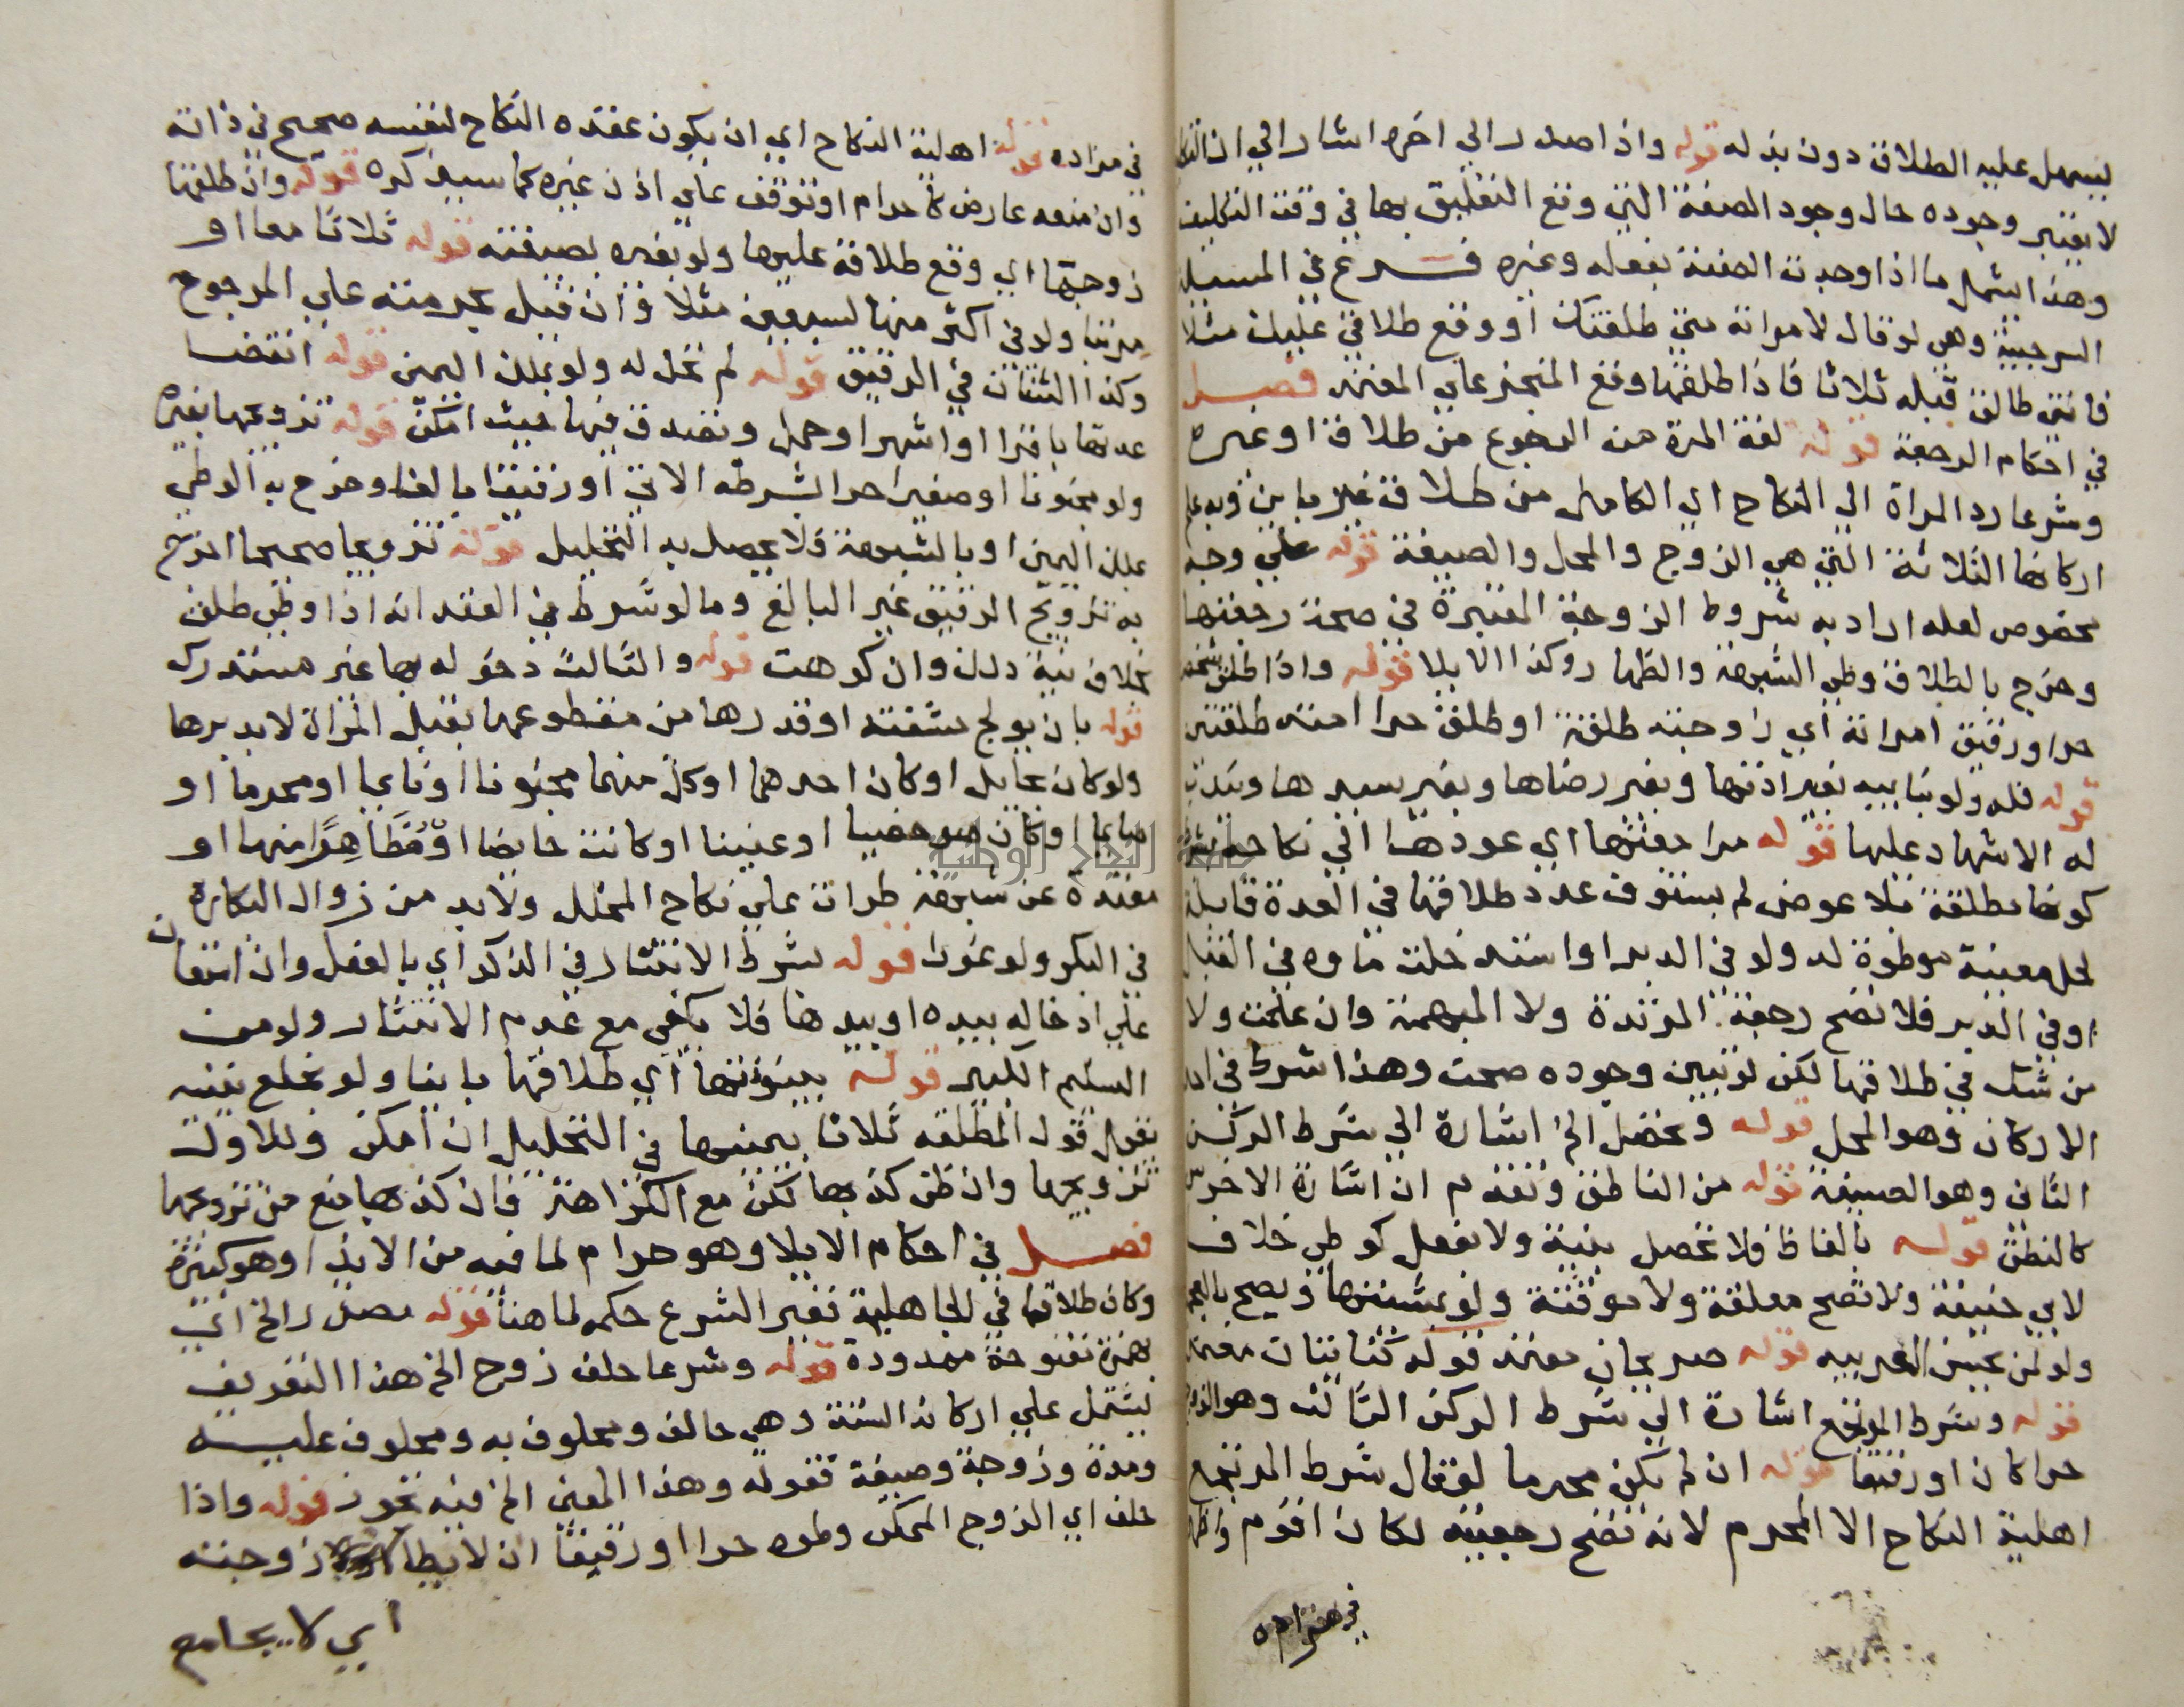 ليسهل عليه الطلاق دون بذله قوله واذا صدر الي اخره اشار الي ان التكليف
لا يعتبر وجوده حال وجود الصفة التي وقع التعليق بها في وقت التكليف
وهذا يشمل ما اذا وجدت الصفة بفعله وغيره فرع في المسيلة
السرجيية وهي لو قال لامراته متي طلقتك او وقع طلاقي عليك مثلا
فانتي طالق قبله ثلاثا فاذا طلقها وقع المنجز علي المعتمد فصل
في احكام الرجعة قوله لغة المرة من الرجوع من طلاق او غيره
وشرعا رد المراة الي النكاح اي الكامل من طلاق غير باين وبه علم
اركانها الثلاثة التي هي الزوج والمحل والصيغة قوله علي وجه
مخصوص لعله اراد به شروط الزوجة المعتبرة في صحة رجعتها
وخرج بالطلاق وطي الشبهة والظهار وكذا الايلا قوله واذا طلق شخص
حر او رقيق امراته اي زوجته طلقة او طلق حرا امته طلقتين
قوله فله ولو بنايبه بغير اذنها وبغير رضاها وبغير سيدها ويندب
له الاشهاد عليها قوله مراجعتها اي عودها الي نكاحه بشرط
كونها مطلقة بلا عوض لم يستوف عدد طلاقها في العدة قابلة
لحل معينة موطوة له ولو في الدبر او استدخلت ماوه في القبل
او في الدبر فلا تصح رجعة المرتدة ولا المبهمة وان علمت ولا
من شك في طلاقها لكن لو تبين وجوده صحت وهذا شرط في احد
الاركان وهو المحل قوله وتحصل الخ اشارة الي شرط الركن
الثاني وهو الصيغة قوله من الناطق وتقدم ان اشارة الاخرس
كالنطق قوله بالفاظ فلا تحصل بنية ولا بفعل كوطي خلافا
لابي حنيفة ولا تصح معلقة ولا موقتة ولو بمشيتها ويصح بالعجمية
ولو لمن يحسن العربيه قوله صريحان معتمد قوله كنايتان معتمد
قوله وشرط المرتجع اشارة الي شرط الركن الثالث وهو الزوج
حرا كان او رقيقا قوله ان لم يكن محرما لو قال شرط المرتجع
اهلية النكاح الا المحرم لانه تصح رجعته لكان اقوم واظهر
في مراده
في مراده قوله اهلية النكاح اي ان يكون عقده النكاح لنفسه صحيح في ذاته
وان منعه عارض كاحرام او توقف علي اذن غيره كما سيذكره قوله وان طلقها
زوجها اي وقع طلاقه عليها ولو بغيره بصيغته قوله ثلاثا معا او
مرتبا ولو في اكثر منها لسبعين مثلا وان قبل بحرمته علي المرجوح
وكذا الثنتان في الرقيق قوله لم تحل له ولو بملك اليمين قوله انقضا
عدتها باقرا او اشهر او حمل وتصدق فيها حيث امكن قوله تزوجها بغيره
ولو مجنونا او صغيرا حرا بشرطه الاتي او رقيقا بالغا وخرج به الوطي
بملك اليمين او بالشبهة فلا يحصل به التحليل قوله تزويجا صحيحا اخرج
به تزويج الرقيق غير البالغ وما لو شرط في العقد انه اذا وطي طلق
بخلاف نية ذلك وان كرهت قوله والثالث دخوله بها غير مستدرك
قوله بان يولج حشفته او قدرها من مقطوعها بقبل المراة لا بدبرها
ولو كان بحايل او كان احدهما او كل منهما مجنونا او نايما او محرما او
صايما او كان هو خصيا او عنينا او كانت حايضا او مُظَاهِرًا منها او
معتدة عن شبهة طرات علي نكاح المحلل ولابد من زوال البكارة
في البكر ولو غورا قوله بشرط الانتشار في الذكر اي بالفعل وان استعان
علي ادخاله بيده او بيدها فلا يكفي مع عدم الانتشار ولو من
السليم الكبير قوله بينونتها اي طلاقها باينا ولو بخلع تنبيه
يقبل قول المطلقه ثلاثا بيمينها في التحليل ان امكن وللاول
تزويجها وان ظن كذبها لكن مع الكراهة فان كذبها منع من تزوجها
فصل في احكام الايلا وهو حرام لما فيه من الايذا وهو كبيرة
وكان طلاقا في الجاهلية فغير الشرع حكمه لما هنا قوله مصدر الخ اي
بهمزة مفتوحة ممدودة قوله وشرعا حلف زوج الخ هذا التعريف
يشتمل علي اركانه الستة وهي حالف ومحلوف به ومحلوف عليه
ومدة وزوجة وصيغة فقوله وهذا المعني الخ فيه تجوز قوله واذا
حلف اي الزوج الممكن وطوه حرا او رقيقا ان لا يطا زوجته
اي لا يجامع
جامعة النجاح الوطنية